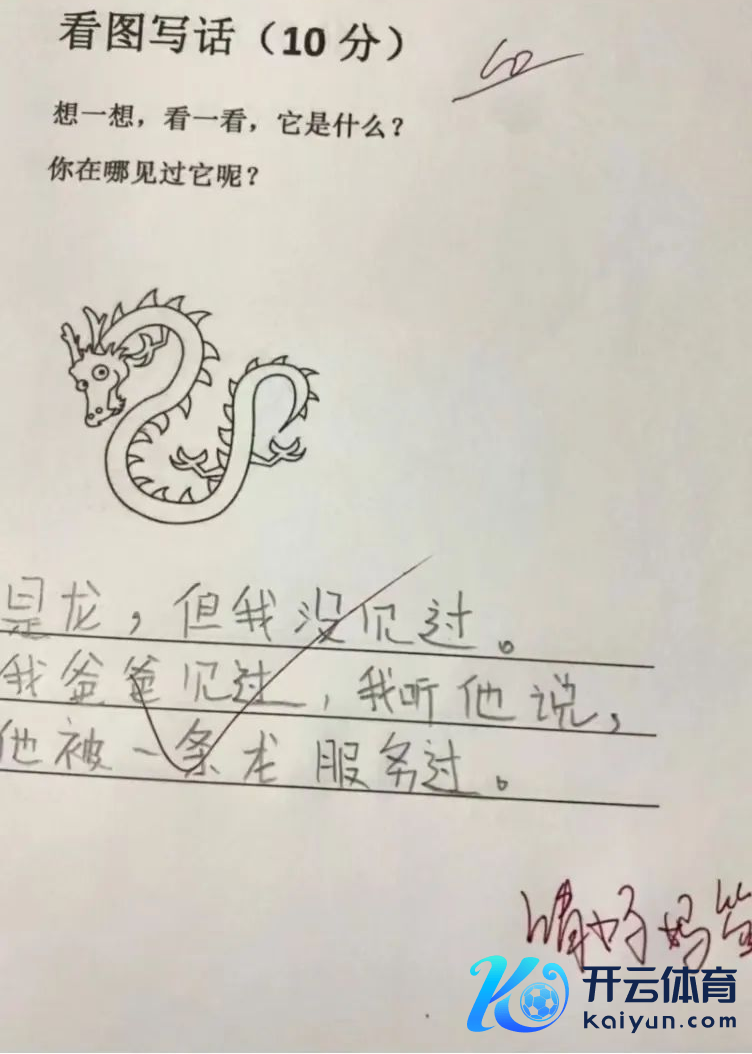 看图写话（10 分）
想一想，看一看，它是什么？
你在哪见过它呢？
是龙，但我没见过。
我爸爸见过，我听他说，
他被一条龙服务过。
请好妈签
开云体育
kaiyun.com